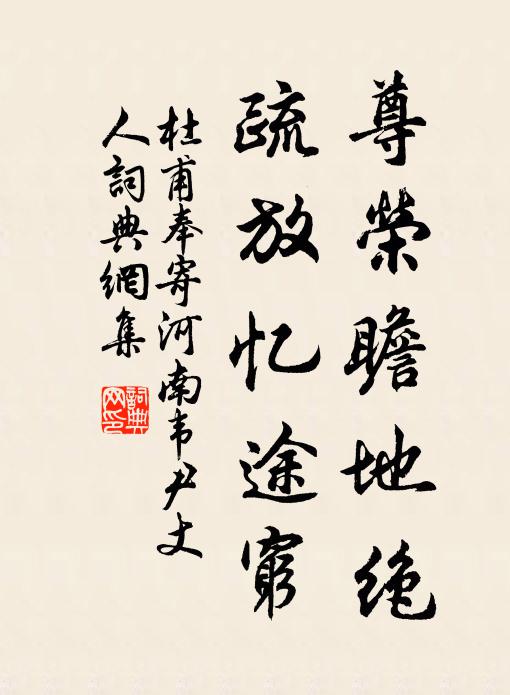 尊榮瞻地絶
疏放忆途窮
杜甫奉寄河南韦尹丈
人詞典網集
詞典
网印